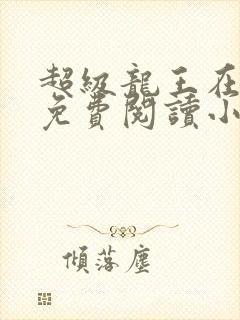 超級龍王在
免費閱讀小
傾落塵